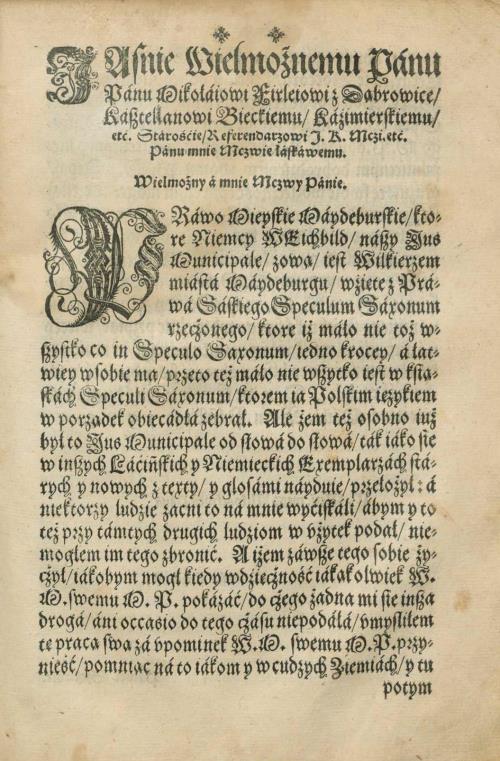 JAśnie Wielmożnemu Pánu
Pánu Mikołáiowi Firleiowi z Dąbrowice/
Kásztellanowi Bieckiemu/ Káźimierskiemu/
etc. Stárośćie/ Referendarzowi J. K. Mczi. etc.
Pánu mnie Mczwie łáskáwemu.
Wielmożny á mnie Mczwy Pánie.
PRáwo Mieyskie Máydeburskie/ kto-
re Niemcy WEichbild/ nászy Jus
Municipale/ zową/ iest Wilkierzem
miástá Máydeburgu/ wźięte z Prá-
wá Sáskiego Speculum Saxonum
rzeczonego/ ktore iż máło nie toż w-
szystko co in Speculo Saxonum/ iedno krocey/ á łat-
wiey w sobie ma/ przeto też máło nie wszytko iest w kśią-
szkách Speculi Saxonum/ ktorem ia Polskim ięzykiem
w porządek obiecádłá zebrał. Ale żem też osobno iuż
był to Jus Municipale od słowá do słowá/ ták iáko się
w inszych Láćińskich y Niemieckich Exemplarzách stá-
rych y nowych z texty/ y glosámi náyduie/ przełożył: á
niektorzy ludzie zacni to ná mnie wyćiskáli/ ábym y to
też przy támtych drugich ludziom w vżytek podał/ nie-
mogłem im tego zbronić. A iżem záwsze tego sobie ży-
czył/ iákobym mogł kiedy wdźięczność iákąkolwiek W.
M. swemu M. P. pokázáć/ do czego żadna mi się insza
drogá/ áni occasio do tego czásu niepodáłá/ vmyśliłem
tę pracą swą zá vpominek W. M. swemu M. P. przy-
nieść/ pomniąc ná to iákom y w cudzych Ziemiách/ y tu
potym